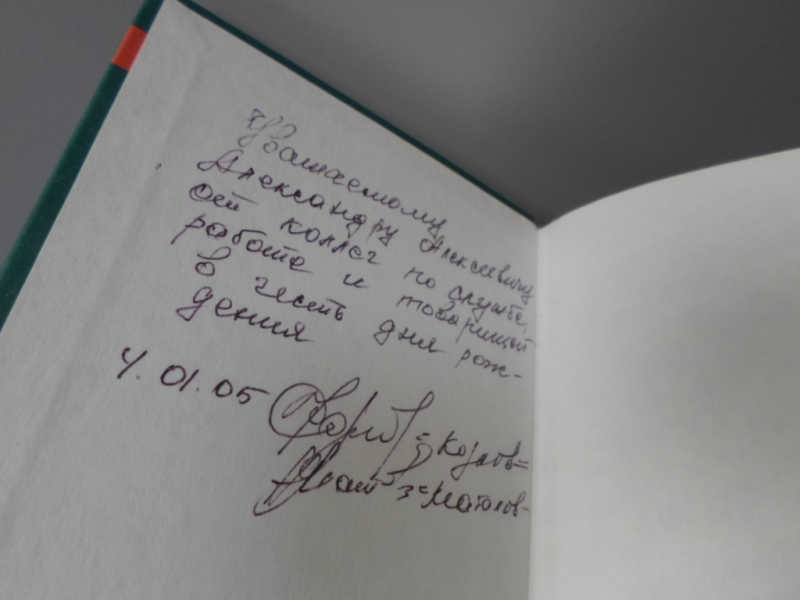 Уважаемому
Александру Алексеевичу
от коллег по службе,
работе и товарищей
в честь дня рож-
дения
4.01.05